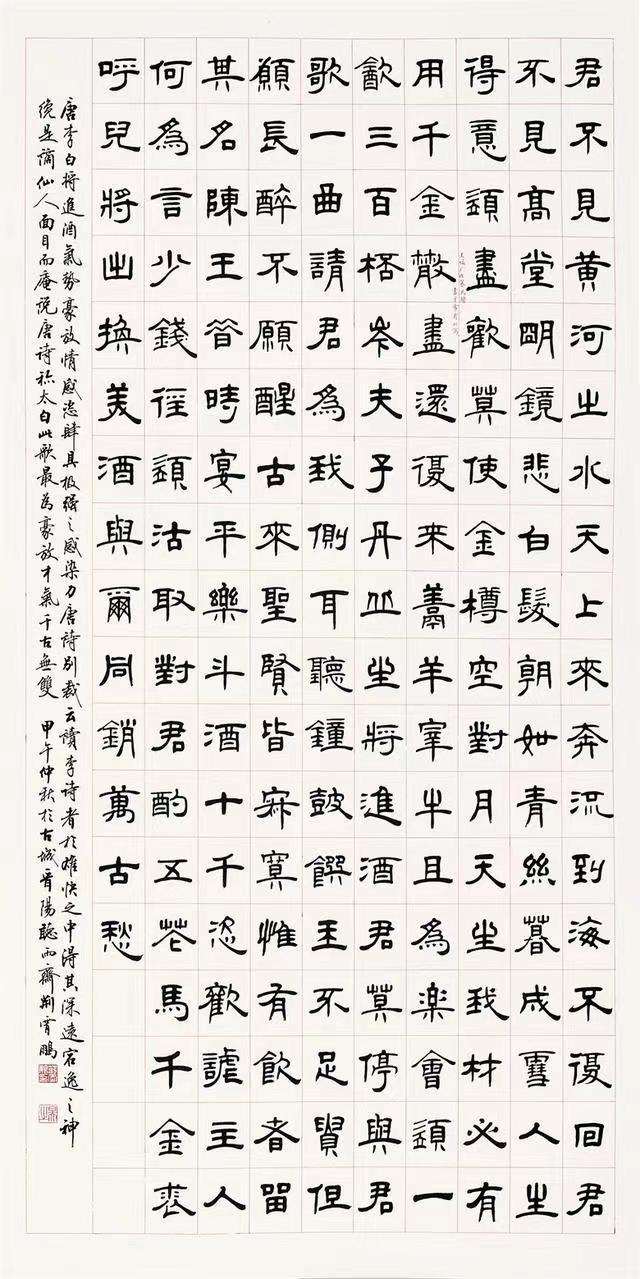 君不見黄河之水天上來奔流到海不復回君
不見高堂明鏡悲白髮朝如青絲暮成雪人生
得意須盡歡莫使金樽空對月天生我材必有
用千金散盡還復來烹羊宰牛且為樂會須一
飲三百桮岑夫子丹丘生將進酒君莫停與君
歌一曲請君為我側耳聽鐘鼓饌玉不足貴但
願長醉不願醒古來聖賢皆寂寞惟有飲者留
其名陳王昔時宴平樂斗酒十千恣歡謔主人
何為言少錢徑須沽取對君酌五花馬千金裘
呼兒將出換美酒與爾同銷萬古愁
唐李白將進酒氣勢豪放情感恣肆具極強之感染力唐詩別裁云讀李詩者於雄快之中得其深遠宕逸之神
纔是謫仙人面目而庵說唐詩稱太白此歌最為豪放才氣千古無雙 甲午仲秋於古城晉陽聽雨齋荊霄鵬